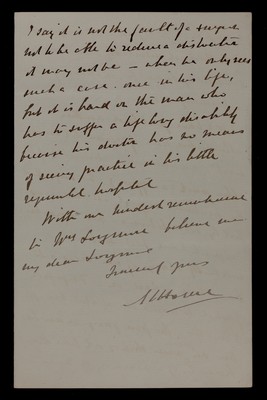 I say it is not the fault of a surgeon
not to be able to reduce a dislocation
it may not be — when he only sees
such a case once in his life,
but it is hard on the man who
has to suffer a life long disability
because his doctor has no means
of seeing practice in his little
regimental hospital
With our kindest remembrance
to Mrs Longmore believe me
my dear Longmore
Sincerely yours